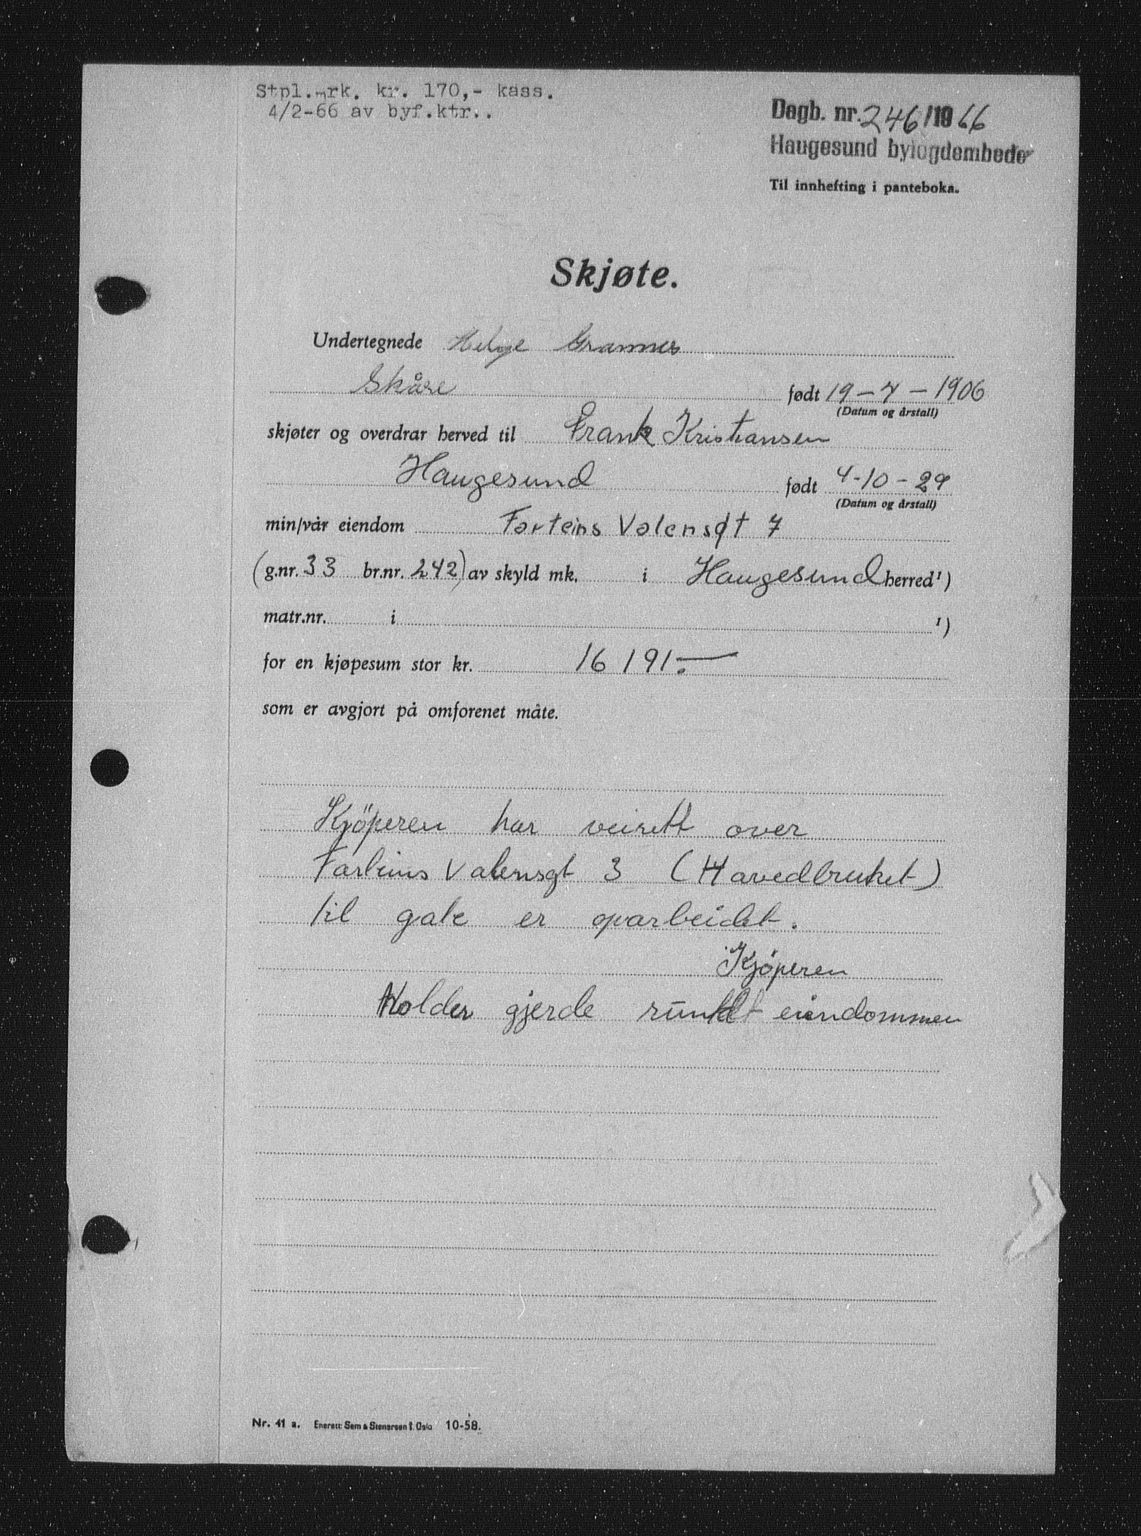 Stpl.mrk. kr. 170,- kass.
4/2-66 av byf.ktr..
Dagb. nr. 246/1966
Haugesund byfogdembede
Til innhefting i panteboka.
Skjøte.
Undertegnede Helge Grannes
Skåre født 19-7-1906
(Datum og årstall)
skjøter og overdrar herved til Frank Kristiansen
Haugesund født 4-10-29
(Datum og årstall)
min/vår eiendom Farteins Valensgt 7
(g.nr. 33 br.nr. 242) av skyld mk. i Haugesund herred¹)
matr.nr. i ¹)
for en kjøpesum stor kr. 16 191.—
som er avgjort på omforenet måte.
Kjöperen har veirett over
Farteins Valensgt 3 (Hovedbruket)
til gate er oparbeidet.
Kjöperen
Holder gjerde rundt eiendommen
Nr. 41 a. Enerett: Sem & Stenersen ⁠Oslo 10-58.